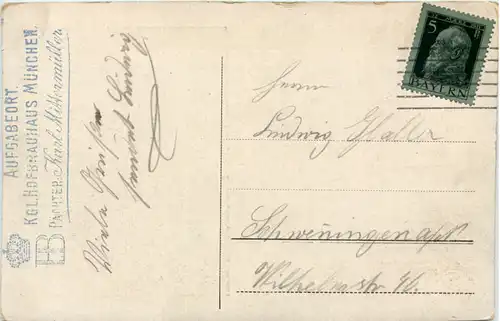 AUFGABEORT.
KGL. HOFBRÄUHAUS MÜNCHEN.
PÄCHTER: Karl Mittermüller
HB
Viele Grüße
Ludwig
5 Pf
BAYERN
Herrn
Ludwig Haller
Schwenningen a/N
Wilhelmstr.